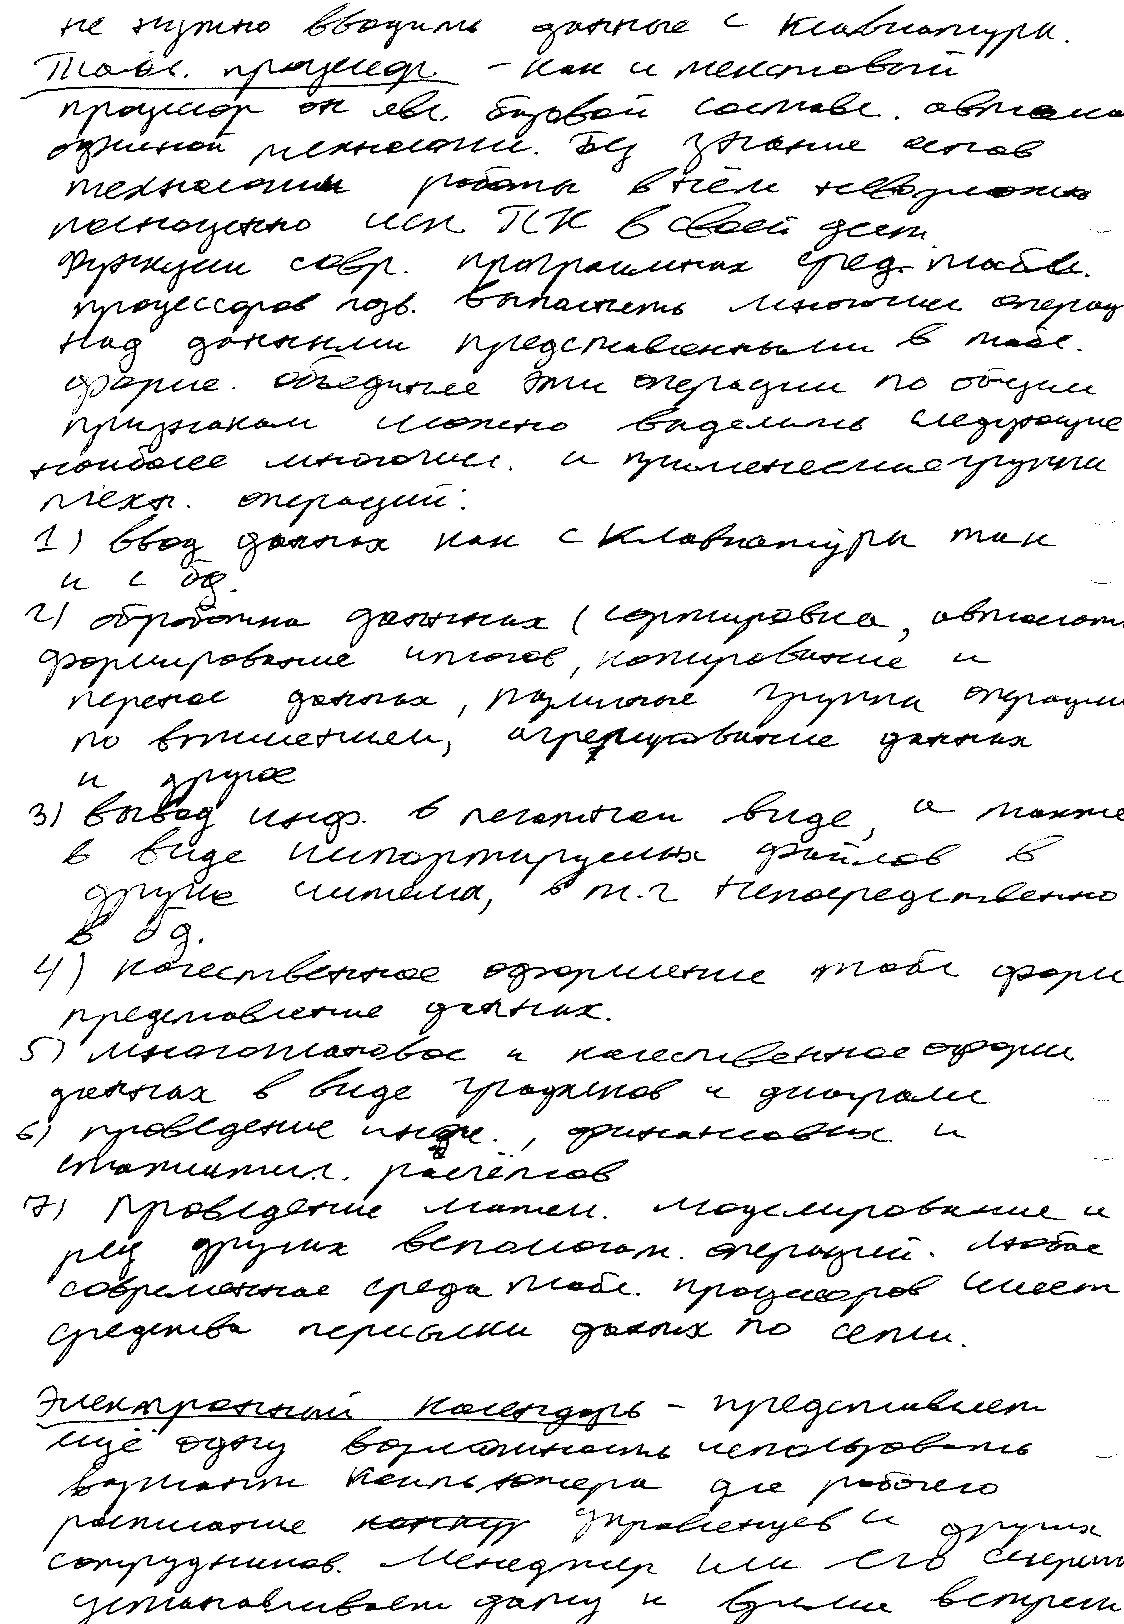 не нужно вводить данные с клавиатуры.
Табл. процессор. – как и текстовый
процессор он явл. базовой составл. автома
офисной технологии. Без знание основ
технологии работы в нём невозможно
полноценно исп ПК в своей деят.
Функции совр. програмных сред табл.
процессоров позв. выполнять многочисл операц
над данными представленными в табл.
форме. Объединяя эти операции по общим
признакам можно выделить следующие
наиболее многочисл. и применяемые группы
техн. операций:
1) ввод данных как с клавиатуры так
и с бд.
2) обработка данных (сортировка, автомат
формирование итогов, копирование и
перенос данных, различные группы операции
по вычислением, агрегирование данных
и другое
3) вывод инф. в печатном виде, а также
в виде импортируемых файлов в
другие системы, в т.ч непосредственно
в бд.
4) качественное оформление табл форм
представление данных.
5) многоплановое и качественное оформ
данных в виде графиков и диаграмм
6) проведение инже., финансовых и
статистич. расчётов
7) проведение матем. моделирование и
ряд других вспомогат. операций. Любое
современное среда табл. процессоров имеет
средства пересылки данных по сети.
Электронный календарь – представляет
ещё одну возможность использовать
вариант компьютера для рабочего
расписание управленцев и других
сотрудников. Менеджер или его секрет
устанавливает дату и время встреч